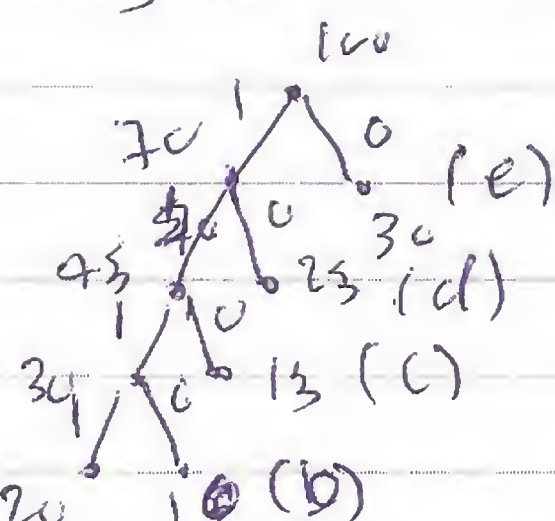 100
1
70 0 (e)
0 30
45 25 (d)
1 0
30 15 (c)
1 0
20 1 (b)